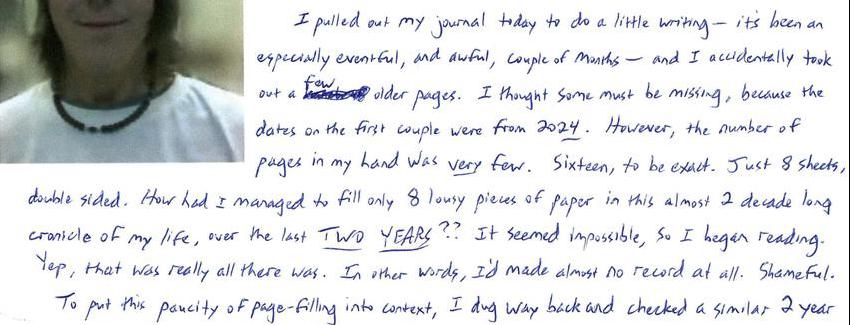 I pulled out my journal today to do a little writing — it's been an
especially eventful, and awful, couple of months — and I accidentally took
out a few older pages. I thought some must be missing, because the
dates on the first couple were from 2024. However, the number of
pages in my hand was very few. Sixteen, to be exact. Just 8 sheets,
double sided. How had I managed to fill only 8 lousy pieces of paper in this almost 2 decade long
cronicle of my life, over the last TWO YEARS?? It seemed impossible, so I began reading.
Yep, that was really all there was. In other words, I'd made almost no record at all. Shameful.
To put this paucity of page-filling into context, I dug way back and checked a similar 2 year